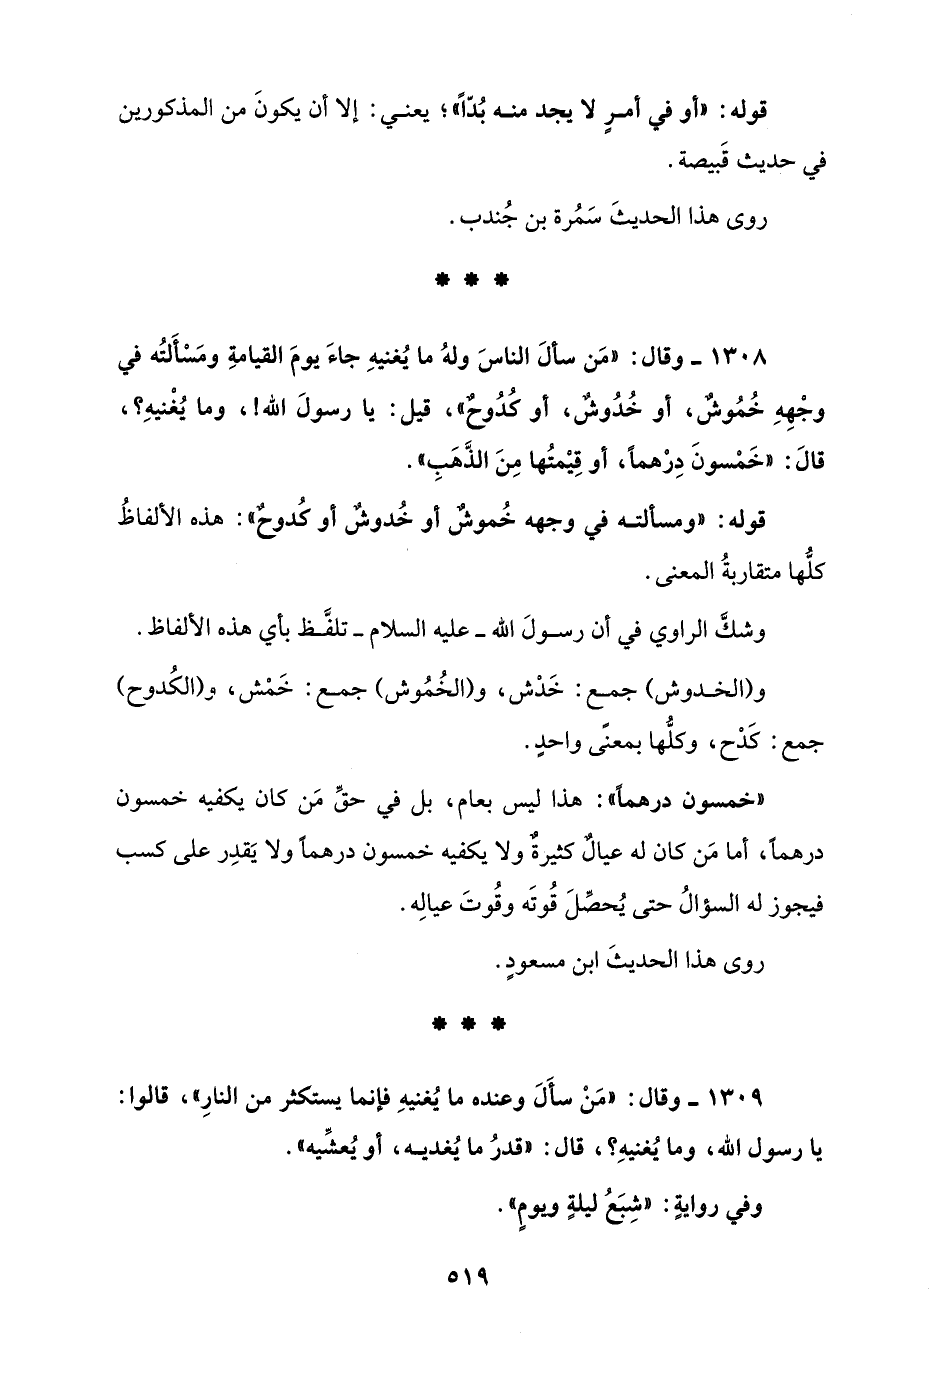 قوله: «أو في أمـرٍ لا يجد منـه بُدّاً»؛ يعنـي: إلا أن يكونَ من المذكورين
في حديث قَبيصة.
روى هذا الحديثَ سَمُرة بن جُندب.
* * *
١٣٠٨ ـ وقال: «مَن سألَ الناسَ ولهُ ما يُغنيهِ جاءَ يومَ القيامةِ ومَسْأَلتُه في
وجْهِهِ خُمُوشٌ، أو خُدُوشٌ، أو كُدُوحٌ»، قيل: يا رسولَ الله!، وما يُغْنيهِ؟،
قالَ: «خَمْسونَ دِرْهماً، أو قِيْمتُها مِنَ الذَّهَبِ».
قوله: «ومسألتـه في وجهه خُموشٌ أو خُدوشٌ أو كُدوحٌ»: هذه الألفاظُ
كلُّها متقاربةُ المعنى.
وشكَّ الراوي في أن رسـولَ الله ـ عليه السلام ـ تلفَّـظ بأي هذه الألفاظ.
و(الخـدوش) جمـع: خَدْش، و(الخُمُوش) جمـع: خَمْش، و(الكُدوح)
جمع: كَدْح، وكلُّها بمعنًى واحدٍ.
«خمسون درهماً»: هذا ليس بعام، بل في حقِّ مَن كان يكفيه خمسون
درهماً، أما مَن كان له عيالٌ كثيرةٌ ولا يكفيه خمسون درهماً ولا يَقدِر على كسب
فيجوز له السؤالُ حتى يُحصِّلَ قُوتَه وقُوتَ عيالِه.
روى هذا الحديثَ ابن مسعودٍ.
* * *
١٣٠٩ ـ وقال: «مَنْ سأَلَ وعنده ما يُغنيهِ فإنما يستكثر من النارِ»، قالوا:
يا رسول الله، وما يُغنيهِ؟، قال: «قدرُ ما يُغديـه، أو يُعشِّيه».
وفي روايةٍ: «شِبَعُ ليلةٍ ويومٍ».
٥١٩